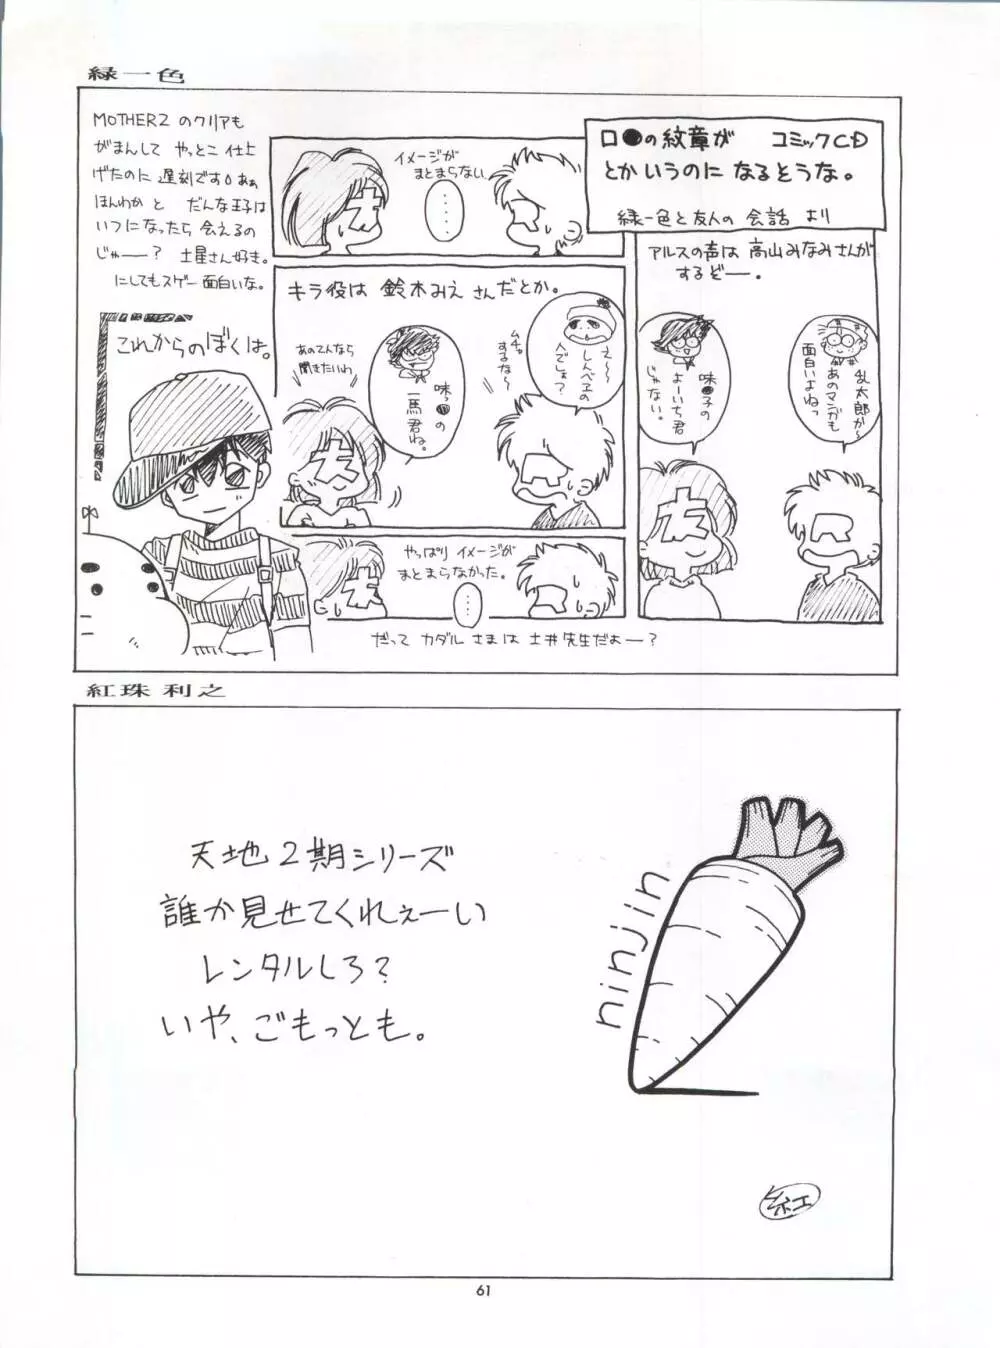 緑一色
MOTHER2 のクリアも
がまんして やっとこ 仕上
げたのに 遅刻ですΟ あぁ
ほんわか と だんな王子は
いつになったら 会えるの
じゃーー? 土星さん好き。
にしてもスゲー 面白いな。
これからのぼくは。
ロ●の紋章が コミックCD
とかいうのに なるそうな。
緑一色と友人の 会話 より
アルスの声は 高山みなみさんが
するぞー。
乱太郎か〜
あのマンガも
面白いよねっ
味●子の
よーいち君
じゃない。
友
R
キラ役は 鈴木みえ さんだとか。
え〜〜
しんべヱの
人でしょ?
ムチャ
するな〜
味っ●の
一馬君ね。
あのてんなら
聞きたいわ
友
R
イメージが
まとまらない
……
友
R
やっぱり イメージが
まとまらなかった。
……
友
R
だって カダル さまは 土井先生だよー?
紅珠 利之
天地2期シリーズ
誰か見せてくれぇーい
レンタルしろ?
いや、ごもっとも。
ninjin
紅
61